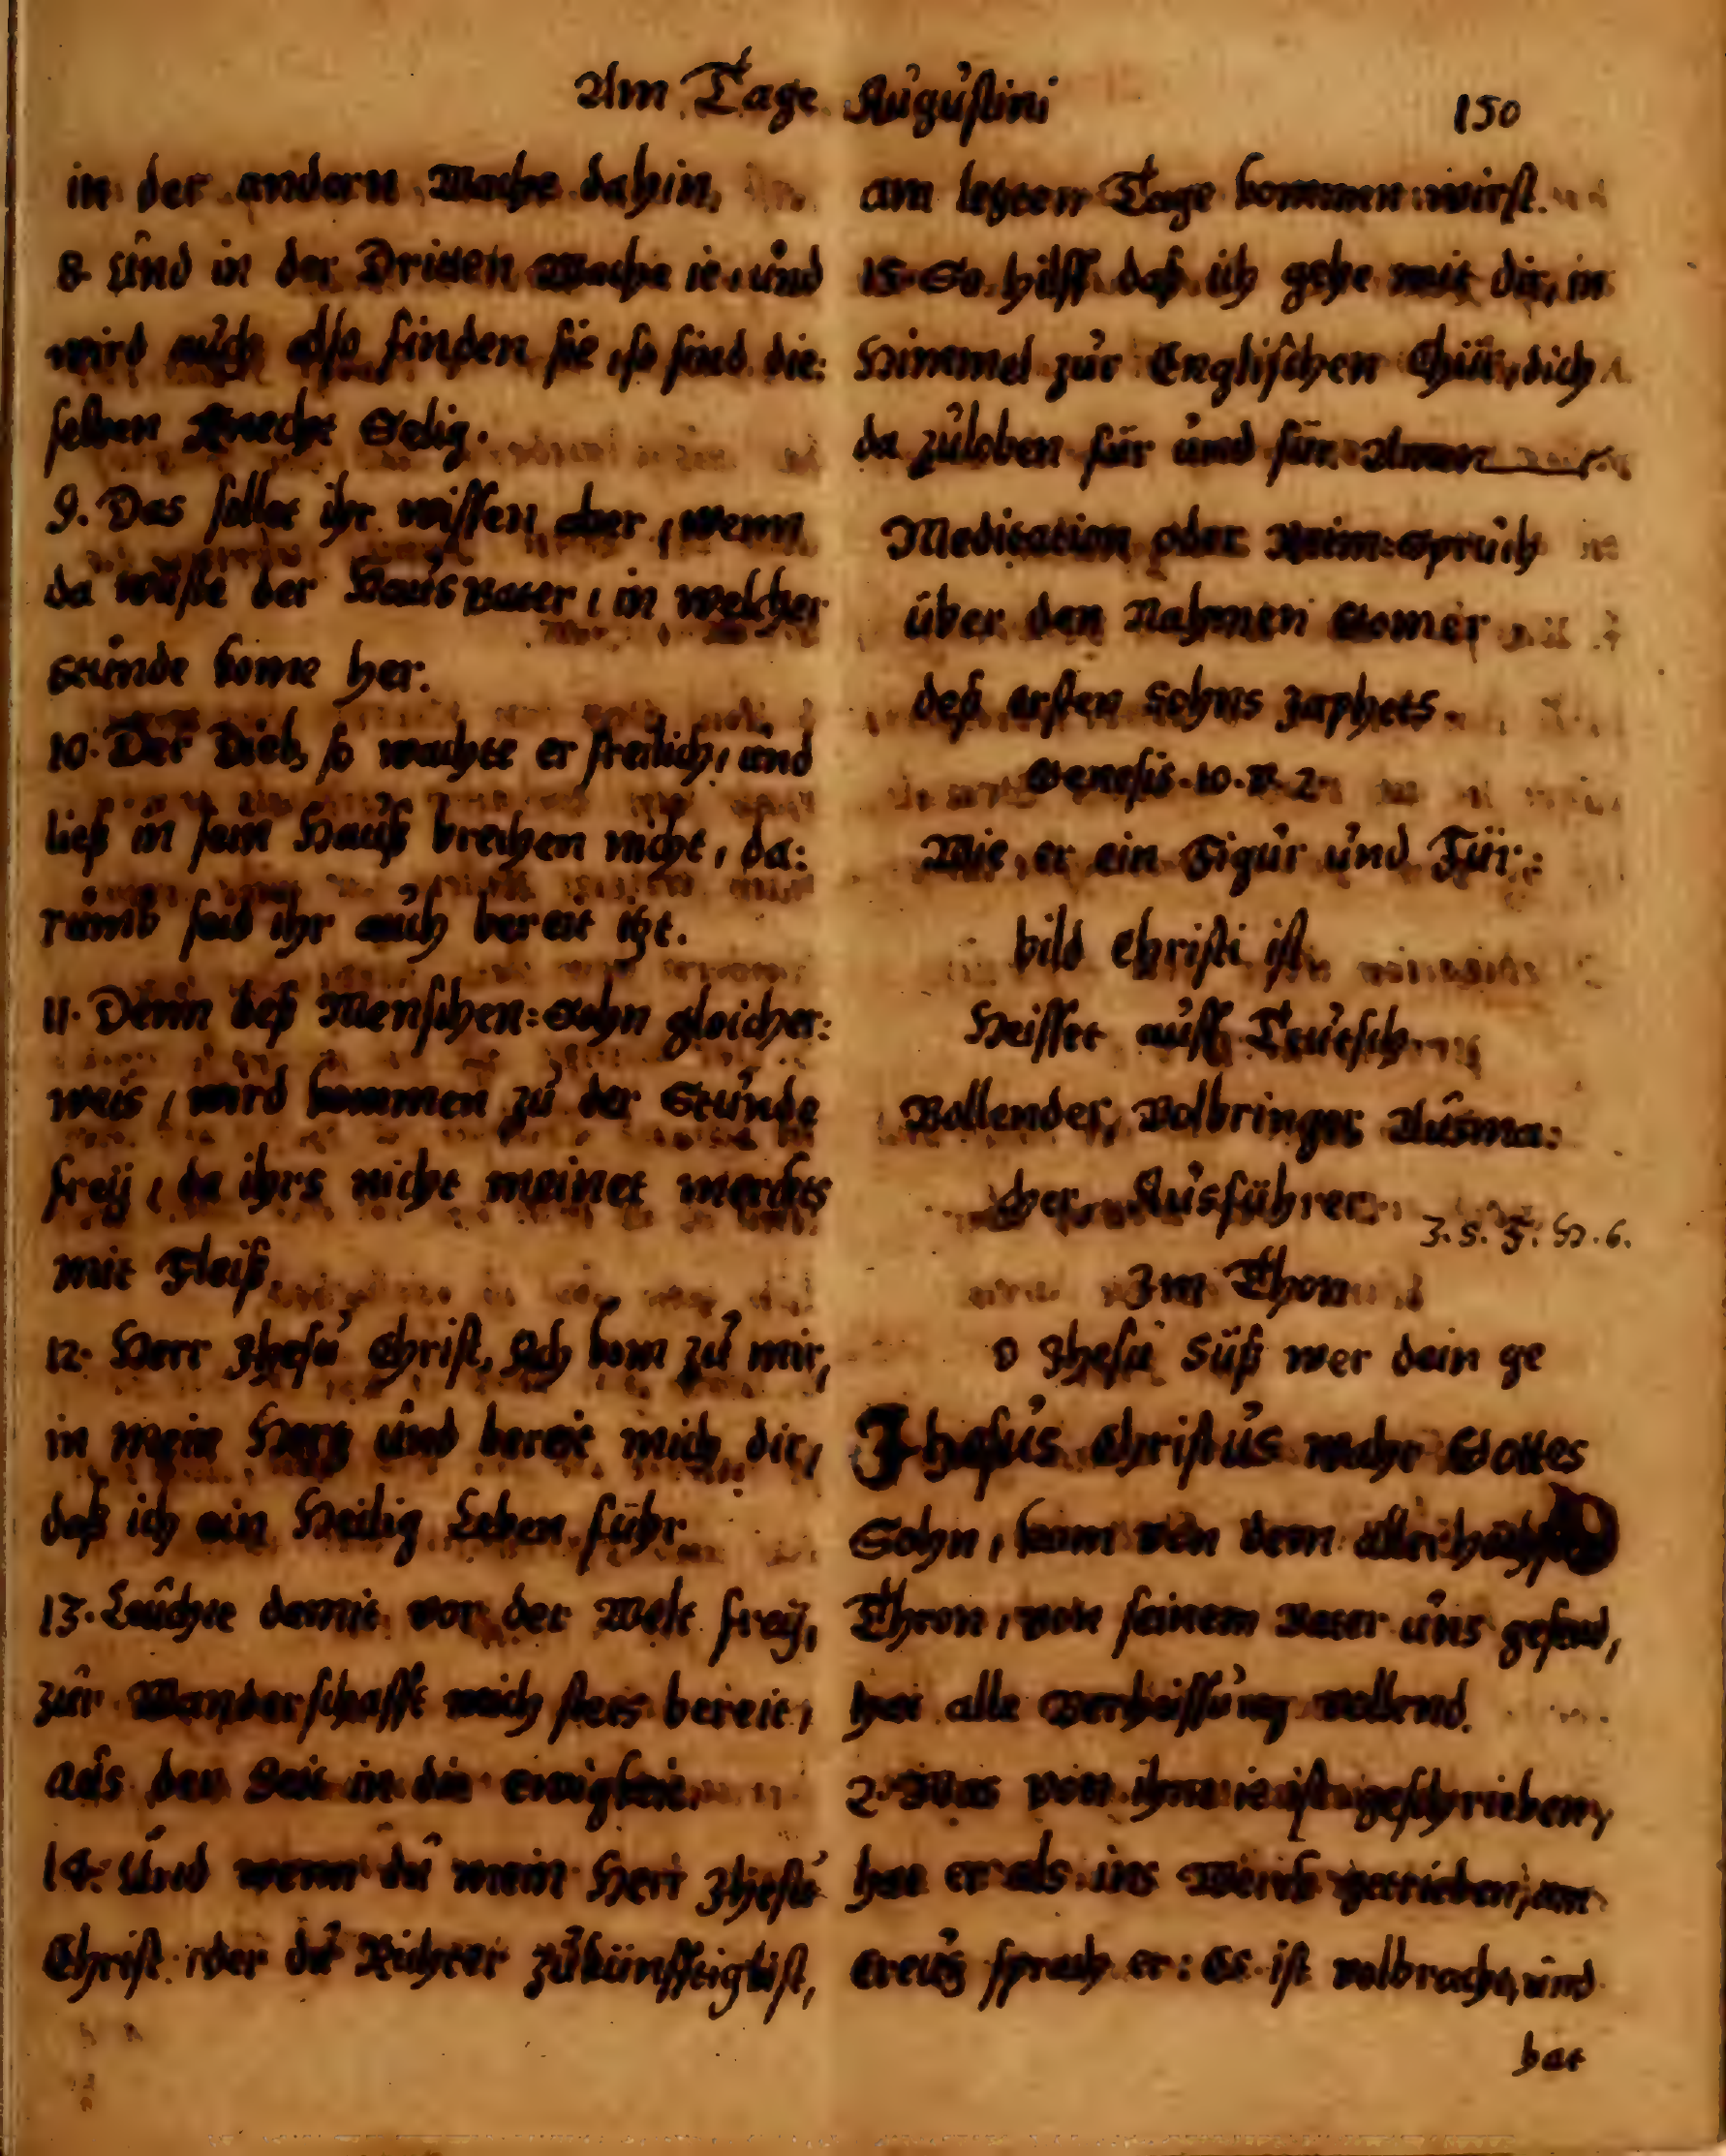 Am Tage Augustini 150
in der andern Wache dahin,
8. Und in der Dritten Wache ie, und
wird auch also finden sie, so sind die:
selben Knecht Selig.
9. Das sollet ihr wissen aber, wenn
da wüste der Haus Vater, in welcher
Stunde kome her.
10. Der Dieb, so wachte er freilich, und
ließ in sein Hauß brechen nicht, da:
rumb seid ihr auch bereit itzt.
11. Denn deß Menschen=Sohn gleicher:
weis, wird kommen zu der Stunde
freÿ, da ihrs nicht meinet merckts
mit Fleiß.
12. Herr Jhesu Christ, Ach kom zu mir,
in mein Hertz und bereit mich dir,
daß ich ein Heilig Leben führ
13. Leuchte damit vor der Welt freÿ,
zur Wanderschafft mich stets bereit,
aus der Zeit in die ewigkeit.
14. Und wenn du mein Herr Jhesu
Christ der du Richter zukünfftig bist,
am letzten Tage kommen wirst.
15. So hilff daß ich gehe mit dir, in
Himmel zur Englischen Thür, dich
da zuloben für und für Amen
Meditation oder Reim=Spruch
über den Nahmen Gomer
deß ersten Sohns Japhets.
Genesis. 10. V. 2.
Wie er ein Figur und Für:
bild Christi ist
Heisset auff Teutsch
Vollender, Volbringer Ausma:
cher Ausführer.
J. S. F. H. 6.
Im Thon
O Jhesu Süß wer dein ge
Jhesus Christus wahr Gottes
Sohn, kam von dem allerhöchst
Thron, von seinem Vater uns gesend,
hat alle Verheissung vollend.
2. Was von ihm ie ist geschrieben,
hat er als ins Werck getrieben, am
Creutz sprach er: Es ist volbracht, und
hat